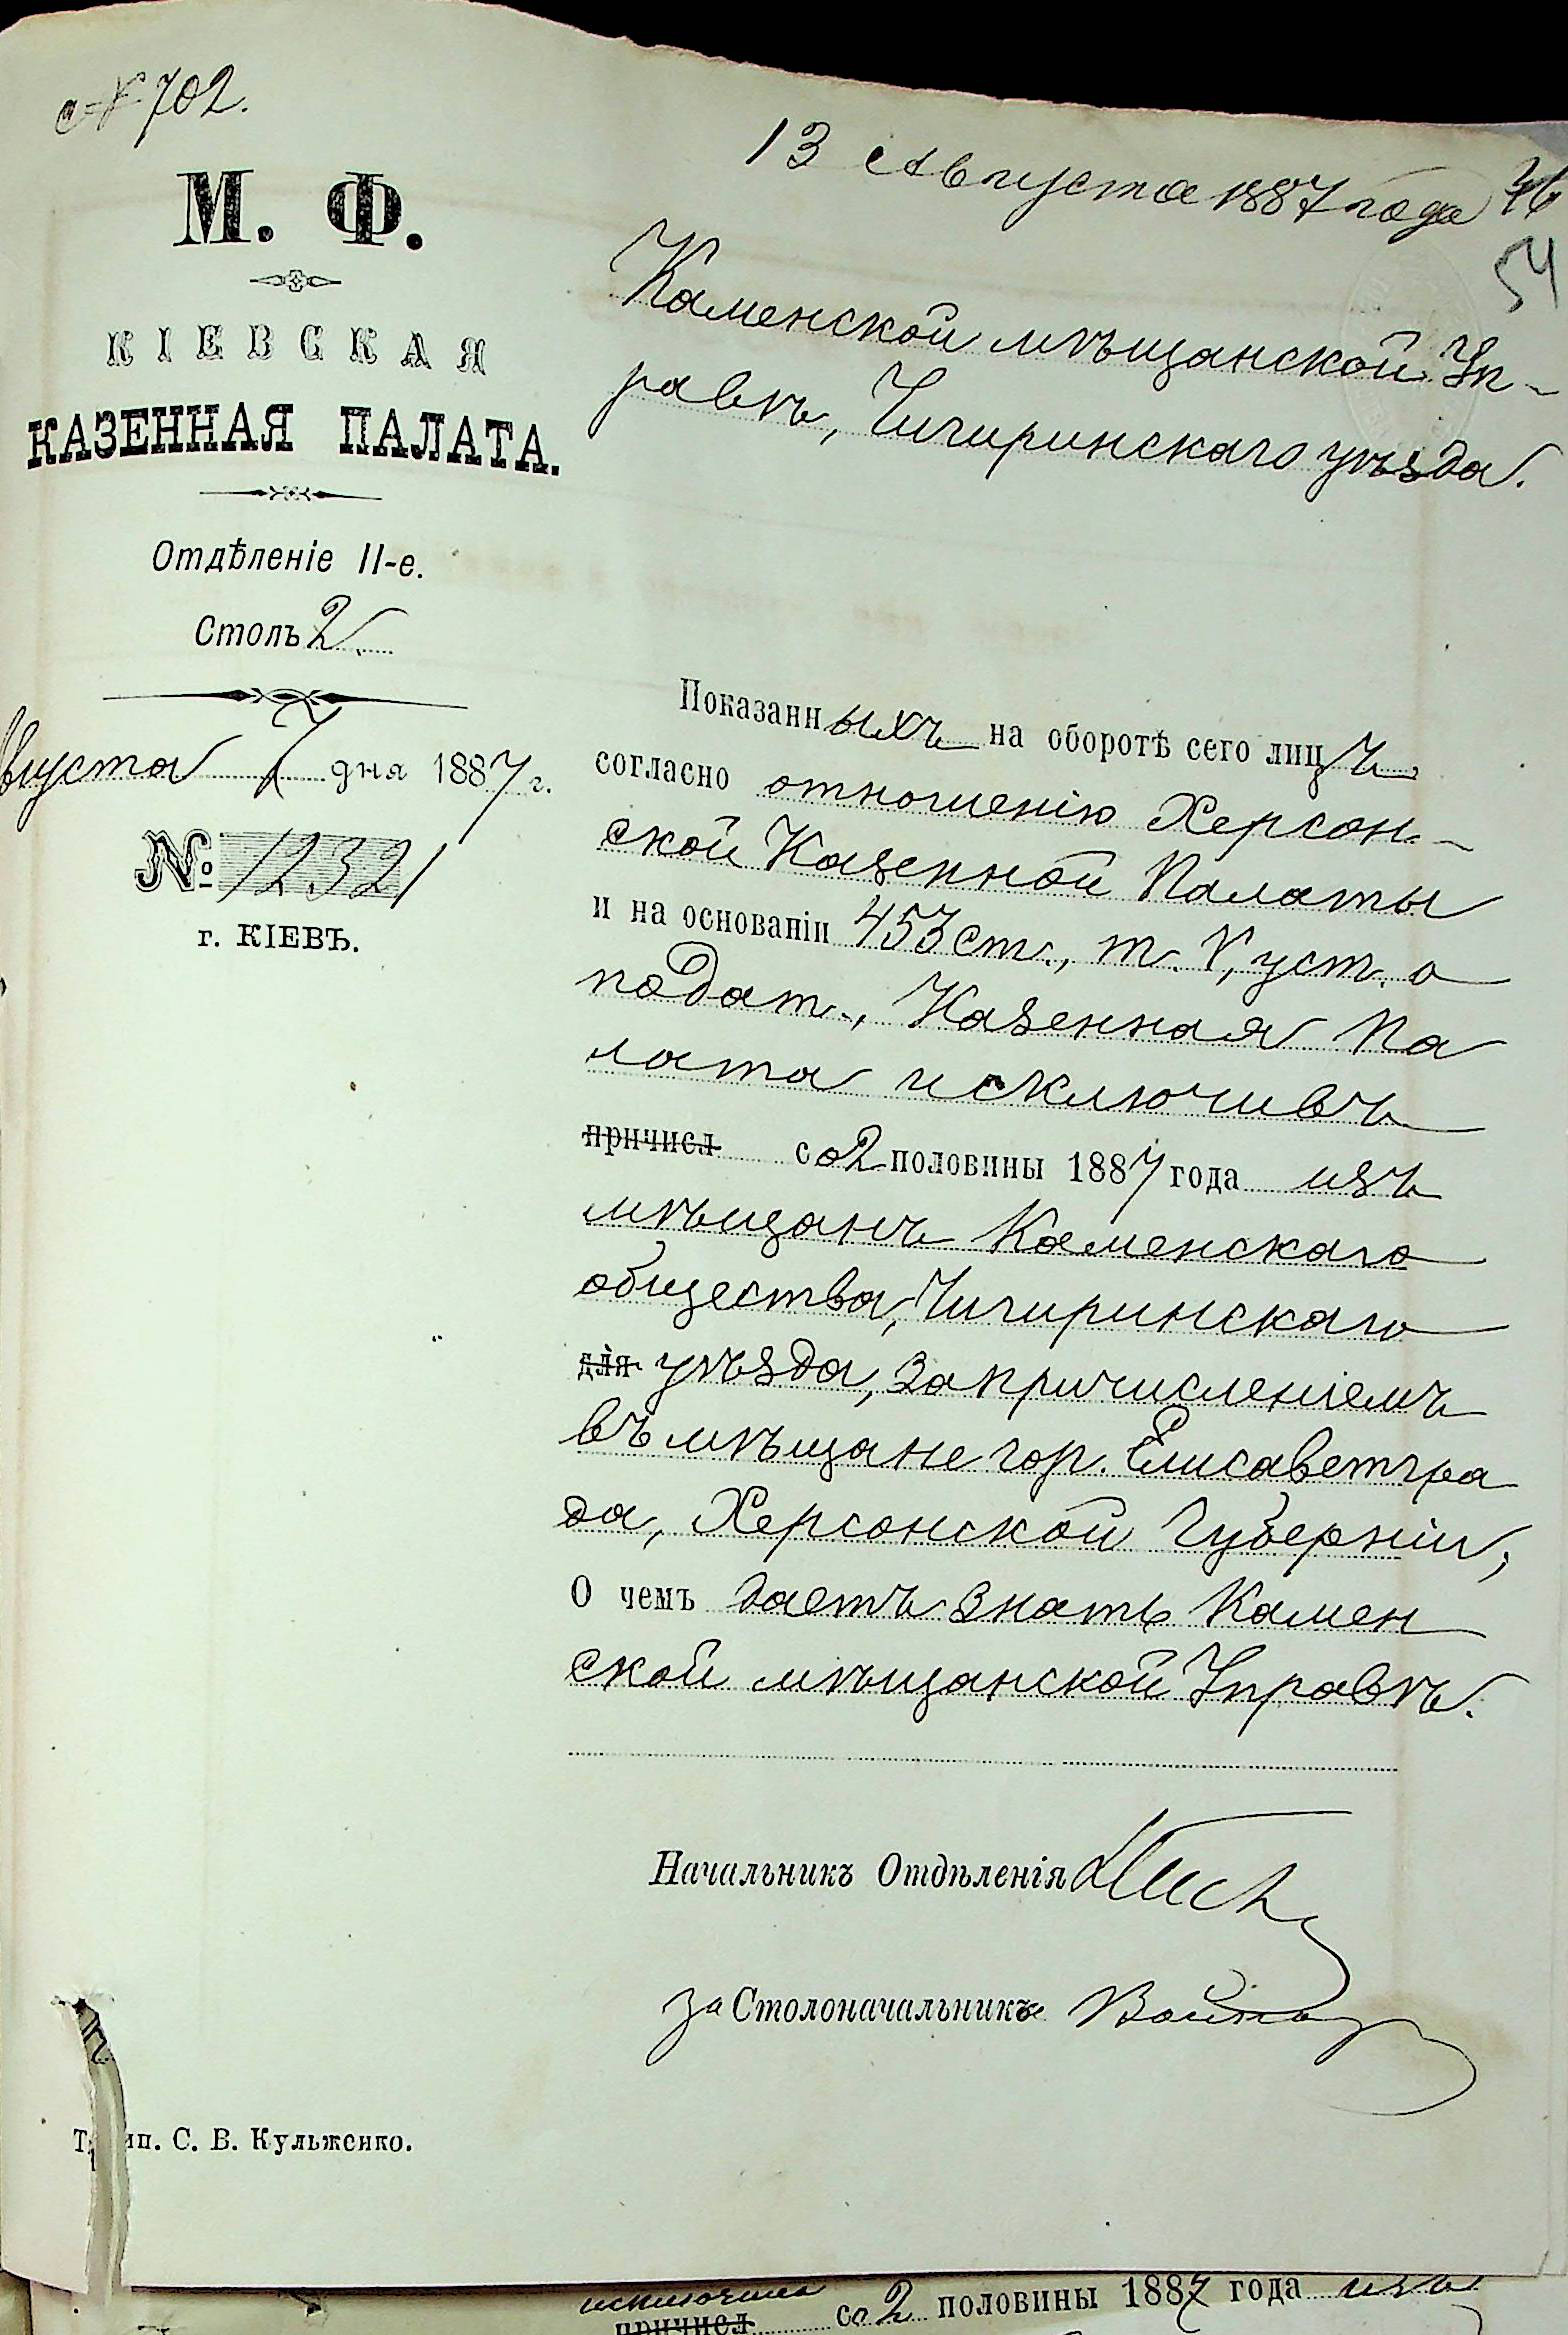 № 702.
13 Августа 1887 года
54
М. Ф.
КІЕВСКАЯ
КАЗЕННАЯ ПАЛАТА.
Отдѣленіе II-е.
Столъ 2
вгуста 7 дня 1887 г.
№ 12321
г. КІЕВЪ.
Каменской мѣщанской Уп-
равѣ, Чигиринскаго уѣзда.
Показанныхъ на оборотѣ сего лицъ
согласно отношенію Херсон-
ской Казенной Палаты
и на основаніи 453 ст., т. V, уст. о
подат., Казенная Па
лата исключивъ
причисл со 2 половины 1887 года изъ
мѣщанъ Каменскаго
общества, Чигиринскаго
для уѣзда, за причисленіемъ
въ мѣщане гор. Елисаветгра
да, Херсонской Губерніи,
О чемъ даетъ знать Камен
ской мѣщанской Управѣ.
Начальникъ Отдѣленія
за Столоначальника
Тип. С. В. Кульженко.
исключила
причисл со 2 половины 1887 года изъ